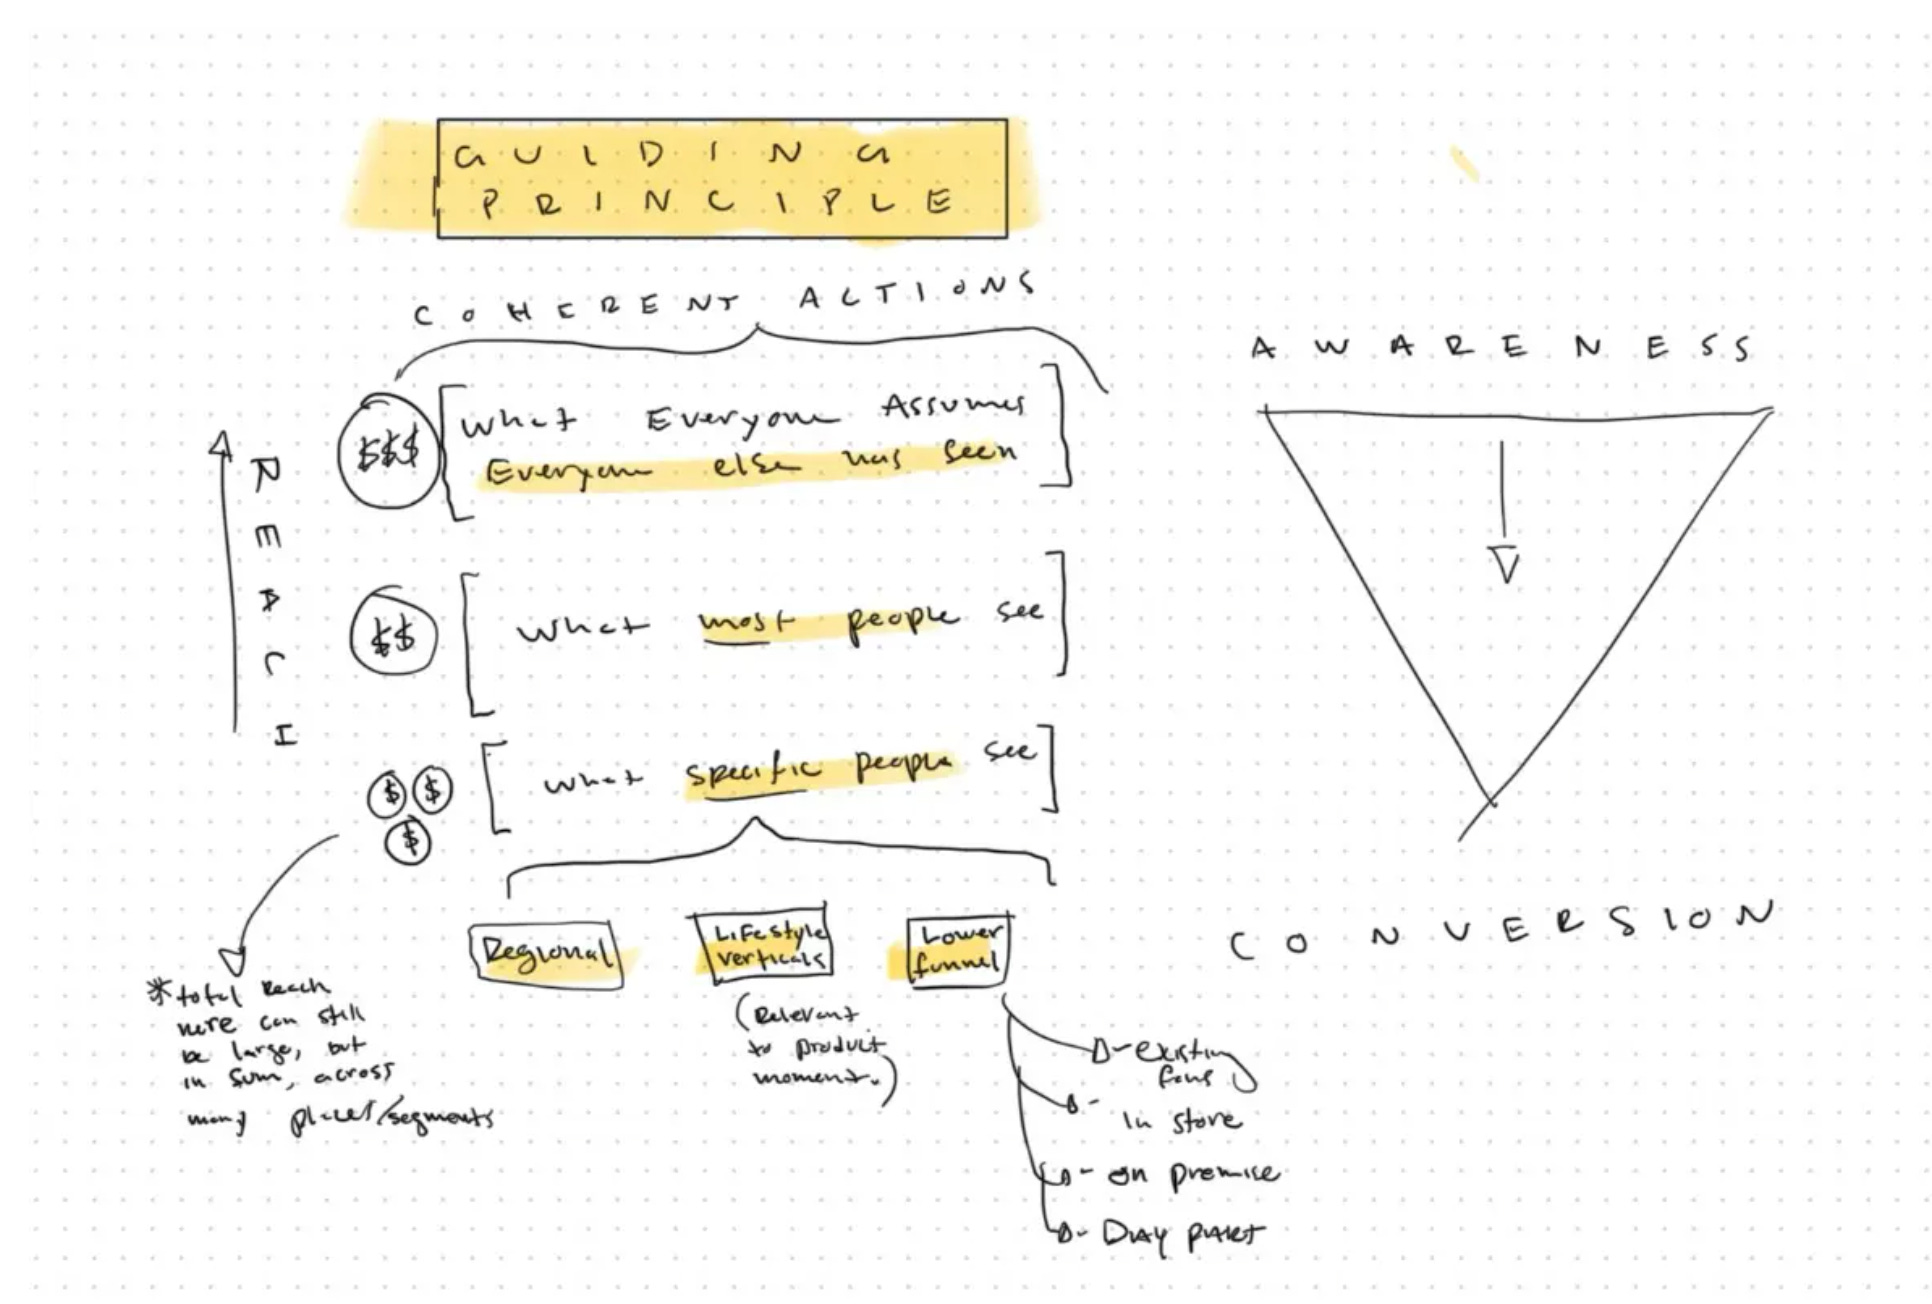 GUIDING
PRINCIPLE
COHERENT ACTIONS
REACH
$$$
What Everyone Assumes
Everyone else has seen
$$
What most people see
$
$
$
What specific people see
Regional
Lifestyle
verticals
Lower
funnel
(Relevant
to product
moment.)
*total Reach
here can still
be large, but
in sum, across
many places/segments
existing
fans
in store
on premise
Day part
AWARENESS
CONVERSION